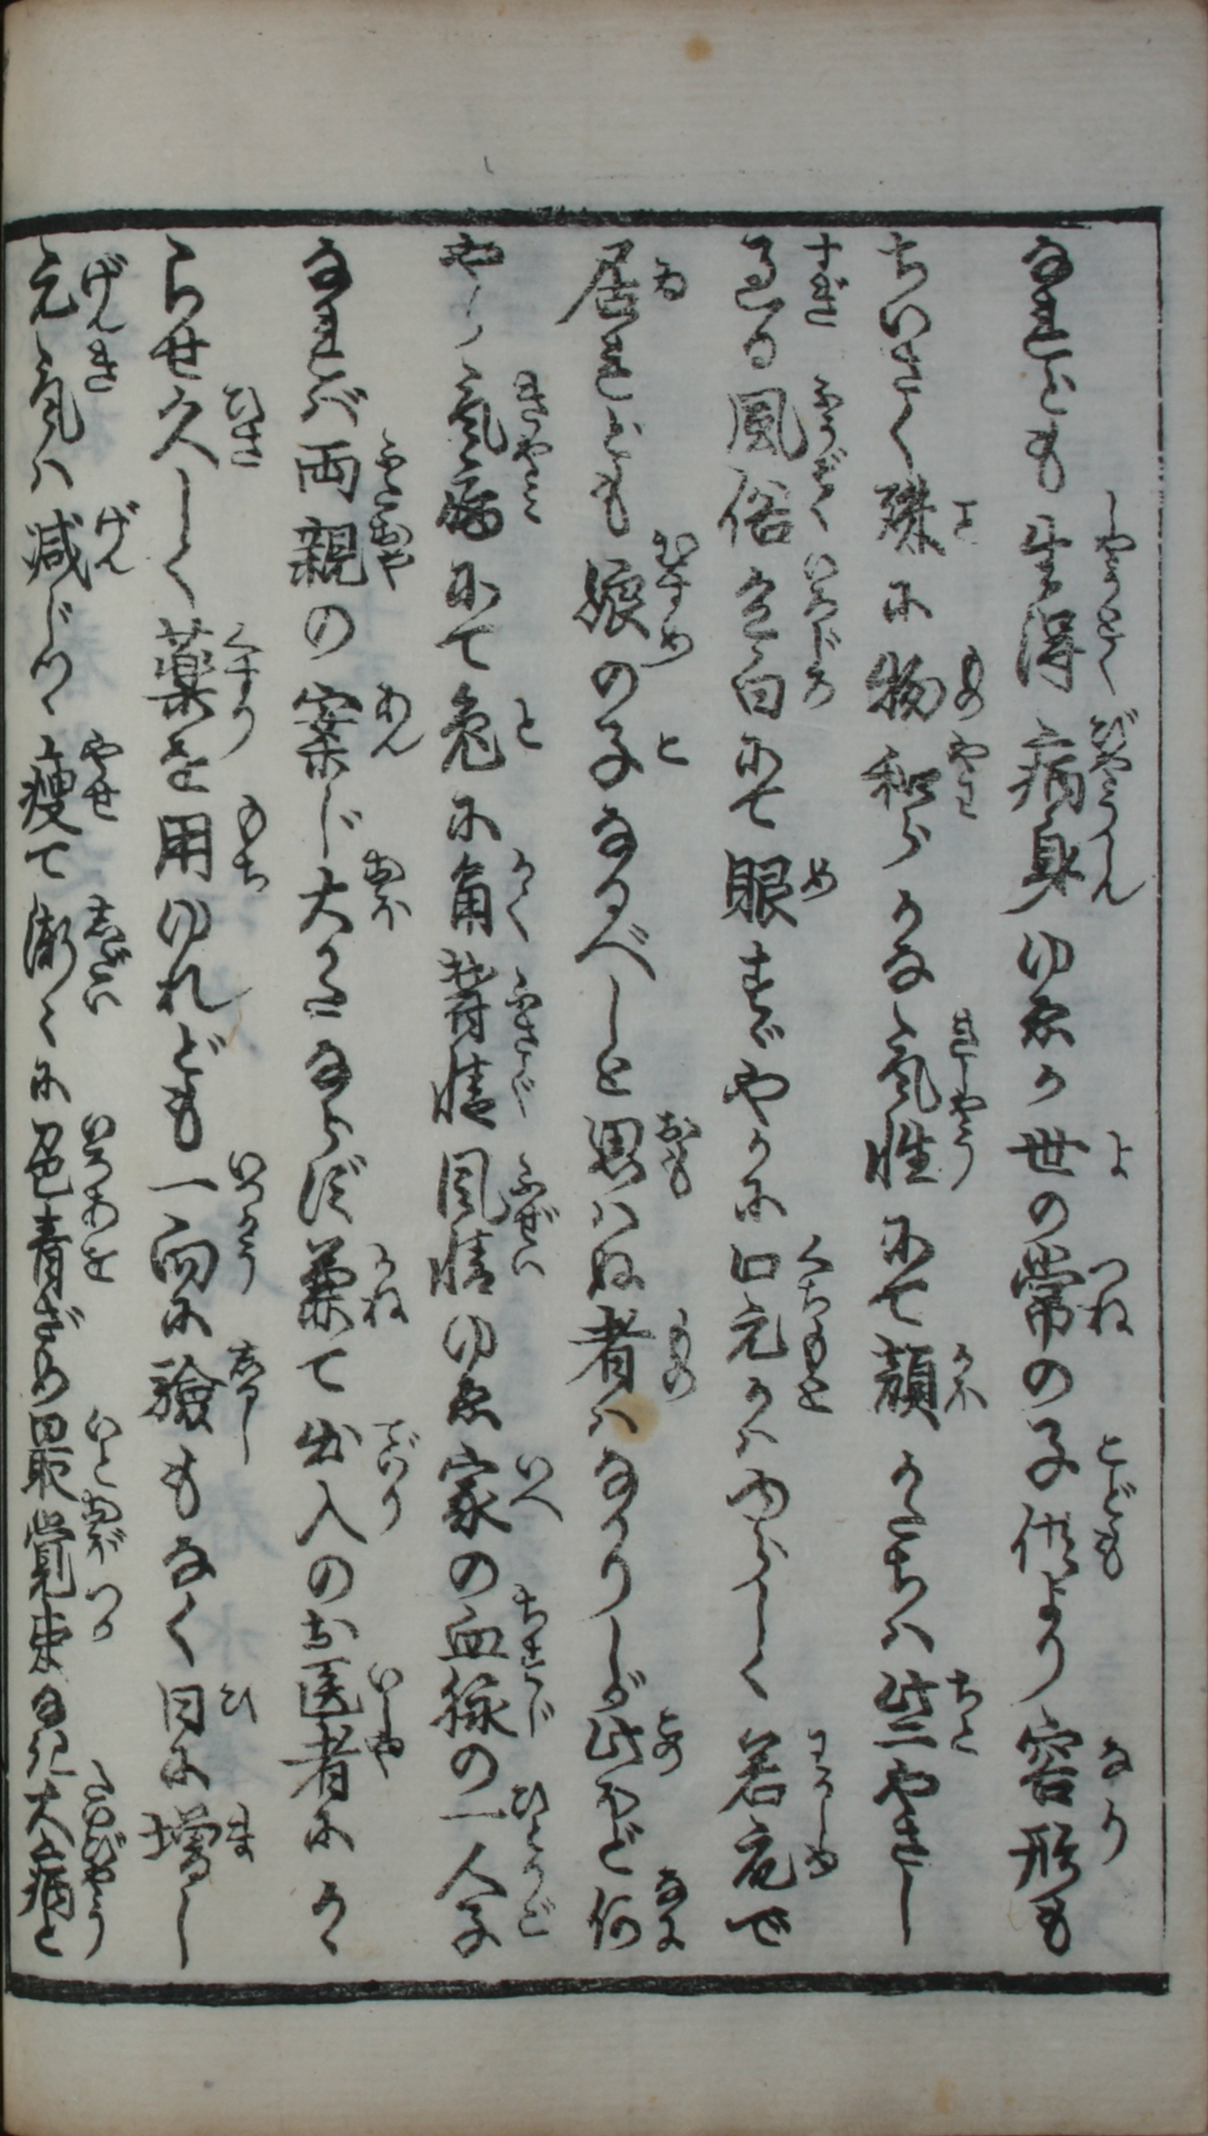 なれども生得病身ゆゑか世の常の子供より容形も
ちいさく殊に物和らかな気性にて顔かたちハ些やさし
過る風俗色白にて眼すゞやかに口元かはゆらしく若衆で
居れども娘の子なるべしと思ハぬ者ハなかりしが此ほど何
やら気病にて兎に角欝情風情ゆゑ家の血脉の一人子
なれバ両親の案じ大かたならず兼て出入のお医者にかゝ
らせ久しく薬を用ゆれども一向に験もなく日に増し
元気ハ減じつゝ痩て漸々に色青ざめ最覚束なき大病と